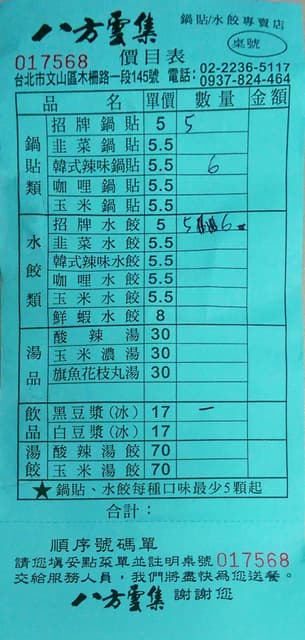 八方雲集 鍋貼/水餃專賣店
017568 價目表 桌號
台北市文山區木柵路一段145號 電話: 02-2236-5117
0937-824-464
品名 單價 數量 金額
鍋貼類
招牌鍋貼 5 5
韭菜鍋貼 5.5
韓式辣味鍋貼 5.5 6
咖哩鍋貼 5.5
玉米鍋貼 5.5
水餃類
招牌水餃 5 6
韭菜水餃 5.5
韓式辣味水餃 5.5
咖哩水餃 5.5
玉米水餃 5.5
鮮蝦水餃 8
湯品
酸辣湯 30
玉米濃湯 30
旗魚花枝丸湯 30
飲品
黑豆漿(冰) 17 一
白豆漿(冰) 17
湯餃
酸辣湯餃 70
玉米湯餃 70
★鍋貼、水餃每種口味最少5顆起
合計:
順序號碼單
請您填妥點菜單並註明桌號 017568
交給服務人員,我們將盡快為您送餐。
八方雲集 謝謝您